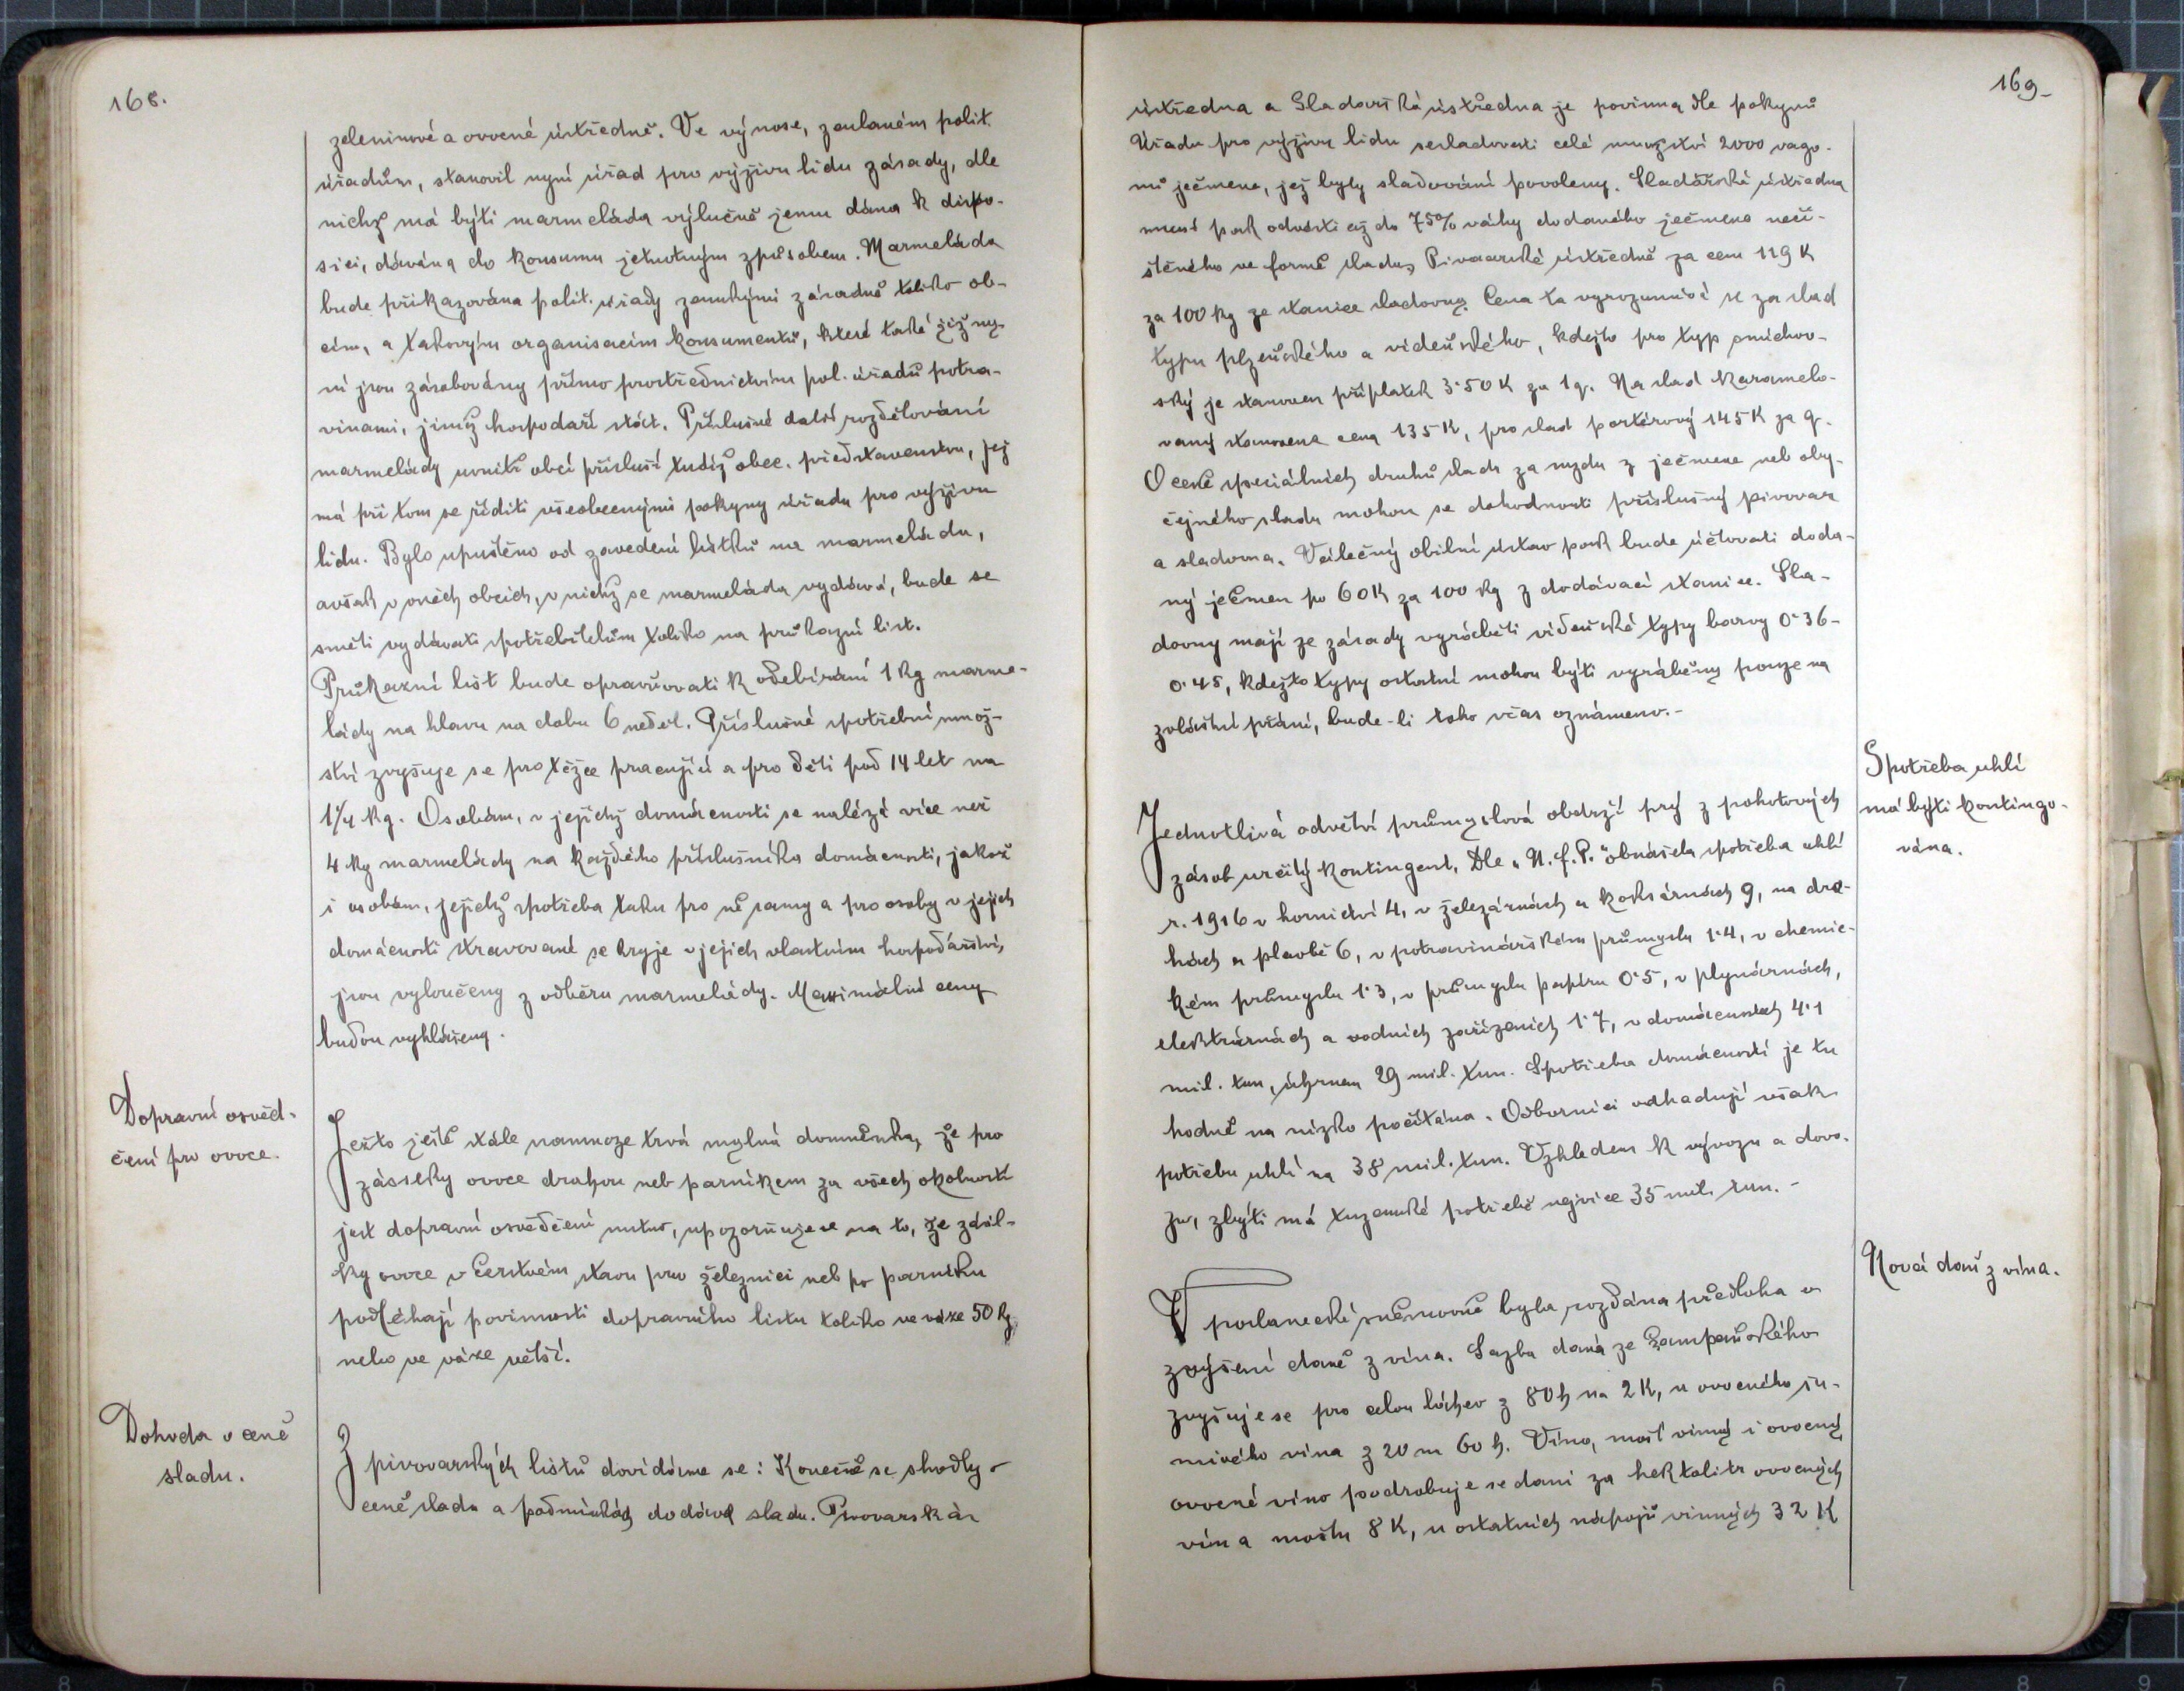 168.
zeleninové a ovocné ústředně. Ve výnose, zaslaném polit.
úřadům, stanovil nyní úřad pro výživu lidu zásady, dle
nichž má býti marmeláda výlučně jemu dána k dispo-
sici, dávána do konsumu jednotným způsobem. Marmeláda
bude přikazována polit. úřady zemskými zásadně toliko ob-
cím, a takovým organisacím konsumentů, které také již ny-
ní jsou zásobovány přímo prostřednictvím pol. úřadů potra-
vinami, jimiž hospodaří stát. Příslušné další rozdělování
marmelády uvnitř obcí přísluší tudíž obec. představenstvu, jež
má při tom se říditi všeobecnými pokyny úřadu pro výživu
lidu. Bylo upuštěno od zavedení lístků na marmeládu,
avšak v oněch obcích, v nichž se marmeláda vydává, bude se
směti vydávati spotřebitelům toliko na průkazní list.
Průkazní list bude opravňovati k odebírání 1 kg marme-
lády na hlavu na dobu 6 neděl. Příslušné spotřební množ-
ství zvyšuje se pro těžce pracující a pro děti pod 14 let na
1¼ kg. Osobám, v jejichž domácnosti se nalézá více než
4 kg marmelády na každého příslušníka domácnosti, jakož
i osobám, jejichž spotřeba tuku pro ně samy a pro osoby v jejich
domácnosti stravované se kryje v jejich vlastním hospodářství,
jsou vyloučeny z odběru marmelády. Maximální ceny
budou vyhlášeny.
Dopravní osvěd-
čení pro ovoce.
Ježto ještě stále namnoze trvá mylná domněnka, že pro
zásilky ovoce drahou neb parníkem za všech okolností
jest dopravní osvědčení nutno, upozorňuje se na to, že zásil-
ky ovoce v čerstvém stavu po železnici neb po parníku
podléhají povinnosti dopravního listu toliko ve váze 50 kg
nebo ve váze větší.
Dohoda o ceně
sladu.
Z pivovarských listů dovídáme se: Konečně se shodly o
ceně sladu a podmínkách dodávek sladu. Pivovarská
169
ústředna a Sladovská ústředna je povinna dle pokynů
Úřadu pro výživu lidu sesladovati celé množství 2000 vago-
nů ječmene, jež byly sladování povoleny. Sladařská ústředna
musí pak odvésti až do 75% váhy dodaného ječmene neči-
štěného ve formě sladu Pivovarské ústředně za cenu 119 K
za 100 kg ze stanice sladovny. Cena ta vyrozumívá se za slad
typu plzeňského a vídeňského, kdežto pro typ smíchov-
ský je stanoven příplatek 3·50 K za 1 q. Na slad karamelo-
vaný stanovena cena 135 K, pro slad portérový 145 K za q.
O ceně speciálních druhů sladu za mzdu z ječmene neb oby-
čejného sladu mohou se dohodnouti příslušný pivovar
a sladovna. Válečný obilní ústav pak bude účtovati doda-
ný ječmen po 60 K za 100 kg z dodávací stanice. Sla-
dovny mají ze zásady vyráběti vídeňské typy barvy 0·36-
0·45, kdežto typy ostatní mohou býti vyráběny pouze na
zvláštní přání, bude-li toho včas oznámeno.-
Spotřeba uhlí
má býti kontingo-
vána.
Jednotlivá odvětví průmyslová obdrží prý z pohotových
zásob určitý kontingent. Dle „N. f. P." obnášela spotřeba uhlí
r. 1916 v hornictví 4, v železárnách a koksárnách 9, na dra-
hách a plavbě 6, v potravinářském průmyslu 1·4, v chemic-
kém průmyslu 1·3, v průmyslu papíru 0·5, v plynárnách,
elektrárnách a vodních zařízeních 1·7, v domácnostech 4·1
mil. tun, úhrnem 29 mil. tun. Spotřeba domácností je tu
hodně na nízko počítána. Odborníci odhadují však
potřebu uhlí na 38 mil. tun. Vzhledem k vývozu a dovo-
zu, zbýti má tuzemské potřebě nejvíce 35 mil. tun.-
Nová daň z vína.
V poslanecké sněmovně byla rozdána předloha o
zvýšení daně z vína. Sazba daná ze šampaňského
zvyšuje se pro celou láhev z 80 h na 2 K, u ovocného šu-
mivého vína z 20 na 60 h. Víno, mošt vinný i ovocný
ovocné víno podrobuje se dani za hektolitr ovocných
vín a moštu 8 K, u ostatních nápojů vinných 32 K